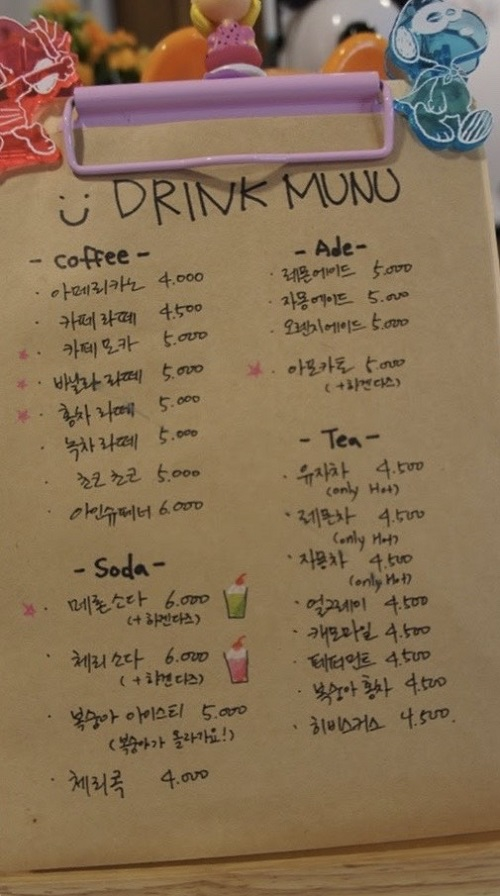 DRINK MUNU
- coffee -
· 아메리카노 4.000
· 카페라떼 4.500
· 카페모카 5.000
· 바닐라라떼 5.000
· 홍차라떼 5.000
· 녹차라떼 5.000
· 쵸코쵸코 5.000
· 아인슈페너 6.000
- Soda -
· 메론소다 6.000
(+하겐다즈)
· 체리소다 6.000
(+하겐다즈)
· 복숭아 아이스티 5.000
(복숭아가 올라가요!)
· 체리콕 4.000
- Ade -
· 레몬에이드 5.000
· 자몽에이드 5.000
· 오렌지에이드 5.000
· 아포카토 5.000
(+하겐다즈)
- Tea -
· 유자차 4.500
(only Hot)
· 레몬차 4.500
(only Hot)
· 자몽차 4.500
(only Hot)
· 얼그레이 4.500
· 캐모마일 4.500
· 페퍼민트 4.500
· 복숭아 홍차 4.500
· 히비스커스 4.500.